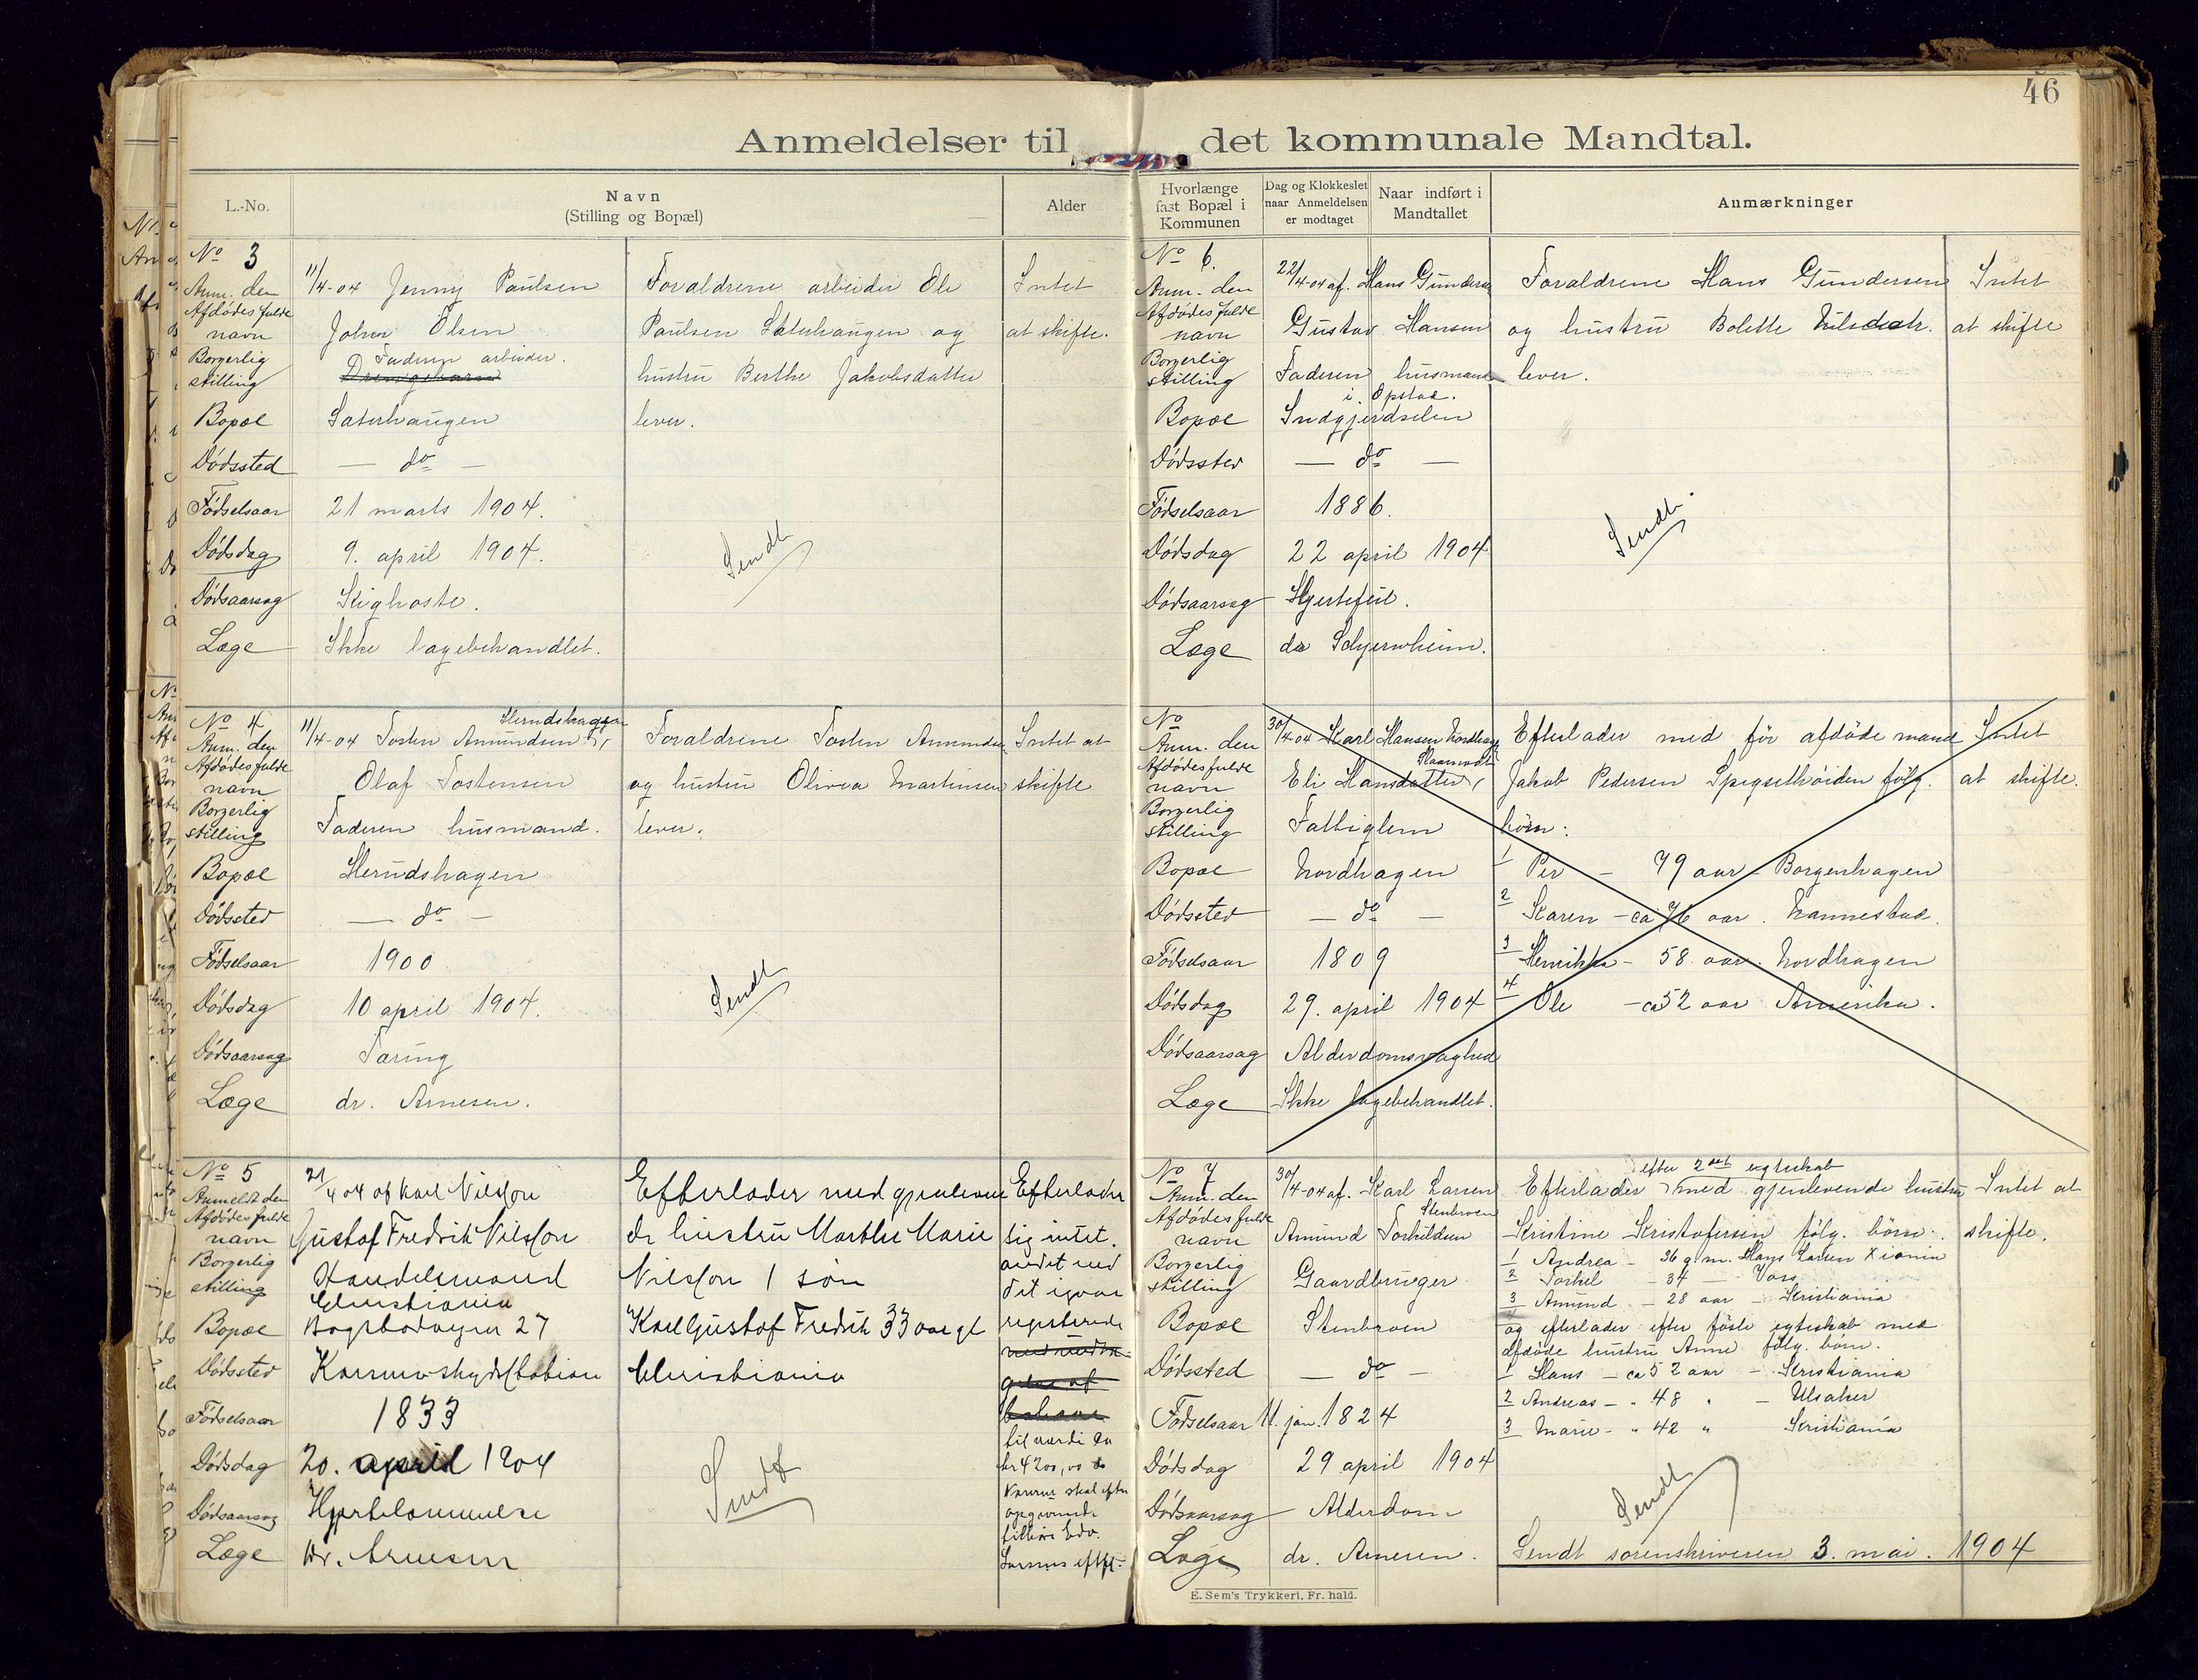 46
Anmeldelser til det kommunale Mandtal.
L.-No.
Navn
(Stilling og Bopæl)
Alder
Hvorlænge
fast Bopæl i
Kommunen
Dag og Klokkeslet
naar Anmeldelsen
er modtaget
Naar indført i
Mandtallet
Anmærkninger
No 3
Anm. den 11/4-04 Jenny Paulsen
Afdødes fulde
navn Johan Olsen
Borgerlig Faderen arbeider.
stilling
Bopæl Sæterhaugen
Dødssted — do —
Fødselsaar 21 marts 1904.
Dødsdag 9. april 1904.
Dødsaarsag Kighoste.
Læge Ikke lægebehandlet.
Forældrene arbeider Ole
Paulsen Sæterhaugen og
hustru Berthe Jakobsdatter
lever.
Sendt
Intet
at skifte.
No 4
Herudshagen
Anm. den 11/4-04 Tosten Amundsen
Afdødes fulde
navn Olaf Tostensen
Borgerlig
stilling Faderen husmand.
Bopæl Herudshagen
Dødssted — do —
Fødselsaar 1900
Dødsdag 10 april 1904.
Dødsaarsag Tæring
Læge dr. Arnesen.
Forældrene Tosten Amundsen
og hustru Olivia Martinsen
lever.
Sendt
Intet at
skifte
No 5
Anmeldt den 21/4 04 af Karl Nilsson
Afdødes fulde
navn Gustaf Fredrik Nilsson
Borgerlig
stilling Handelsmand
Christiania
Bopæl 27
Dødssted
Fødselsaar 1833
Dødsdag 20. april 1904
Dødsaarsag Hjertelammelse
Læge Dr. Arnesen
Efterlader med gjenleven
de hustru Marthe Marie
Nilsson 1 søn
Karl Gustaf Fredrik 33 aar gl
Christiania
Sendt
Efterlader
sig intet.
andet end
det igaar
registrerede
til værdi ca
kr 4200,00
Varerne skal efter
opgivende
tilhøre Edv.
Larsens eftf.
No 6.
Anm. den 22/4-04 af. Hans Gundersen
Afdødes fulde
navn Gustav Hansen
Borgerlig
stilling Faderen husmand
i Opstad.
Bopæl Indgjerdselen
Dødssted — do —
Fødselsaar 1886.
Dødsdag 22 april 1904
Dødsaarsag Hjertefeil.
Læge
Forældrene Hans Gundersen
og hustru Bolette Nilsdatr.
lever.
Sendt
Intet
at skifte
No
Anm. den 30/4-04 Karl Hansen Nordhagen
Afdødes fulde
navn Eli Hansdatter,
Borgerlig
stilling Fattiglem
Bopæl Nordhagen
Dødssted — do —
Fødselsaar 1809
Dødsdag 29. april 1904
Dødsaarsag Alderdomssvaghed
Læge Ikke lægebehandlet.
Efterlader med før afdøde mand
Jakob Pedersen Spigsethøiden følg.
børn:
1 Per — 79 aar — Borgenhagen
2 Karen — ca 76 aar. Nannestad.
3 Henrikka — 58 aar. Nordhagen
4 Ole — ca 52 aar Amerika.
Intet
at skifte.
No 7
Anm. den 30/4-04 af. Karl Larsen
Stenbroen
Afdødes fulde
navn Amund Torkildsen
Borgerlig
stilling Gaardbruger
Bopæl Stenbroen
Dødssted — do —
Fødselsaar 11. jan. 1824
Dødsdag 29 april 1904
Dødsaarsag Alderdom
Læge dr. Arnesen.
efter 2det egteskab
Efterlader med gjenlevende hustru
Kristine Kristofersen følg. børn:
1 Andrea — 36 g. m. Hans Larsen Xiania
2 Torkel — 34 — Vors
3 Amund — 28 aar — Kristiania
og efterlader efter føste egteskab med
afdøde hustru Anne følg. børn.
1 Hans — ca 52 aar — Kristiania
2 Andreas — " 48 " — Ulsaker
3 Marie — " 42 " Kristiania
Sendt
Sendt sorenskriveren 3. mai. 1904
Intet at
skifte.
E. Sem's Trykkeri, Fr. hald.